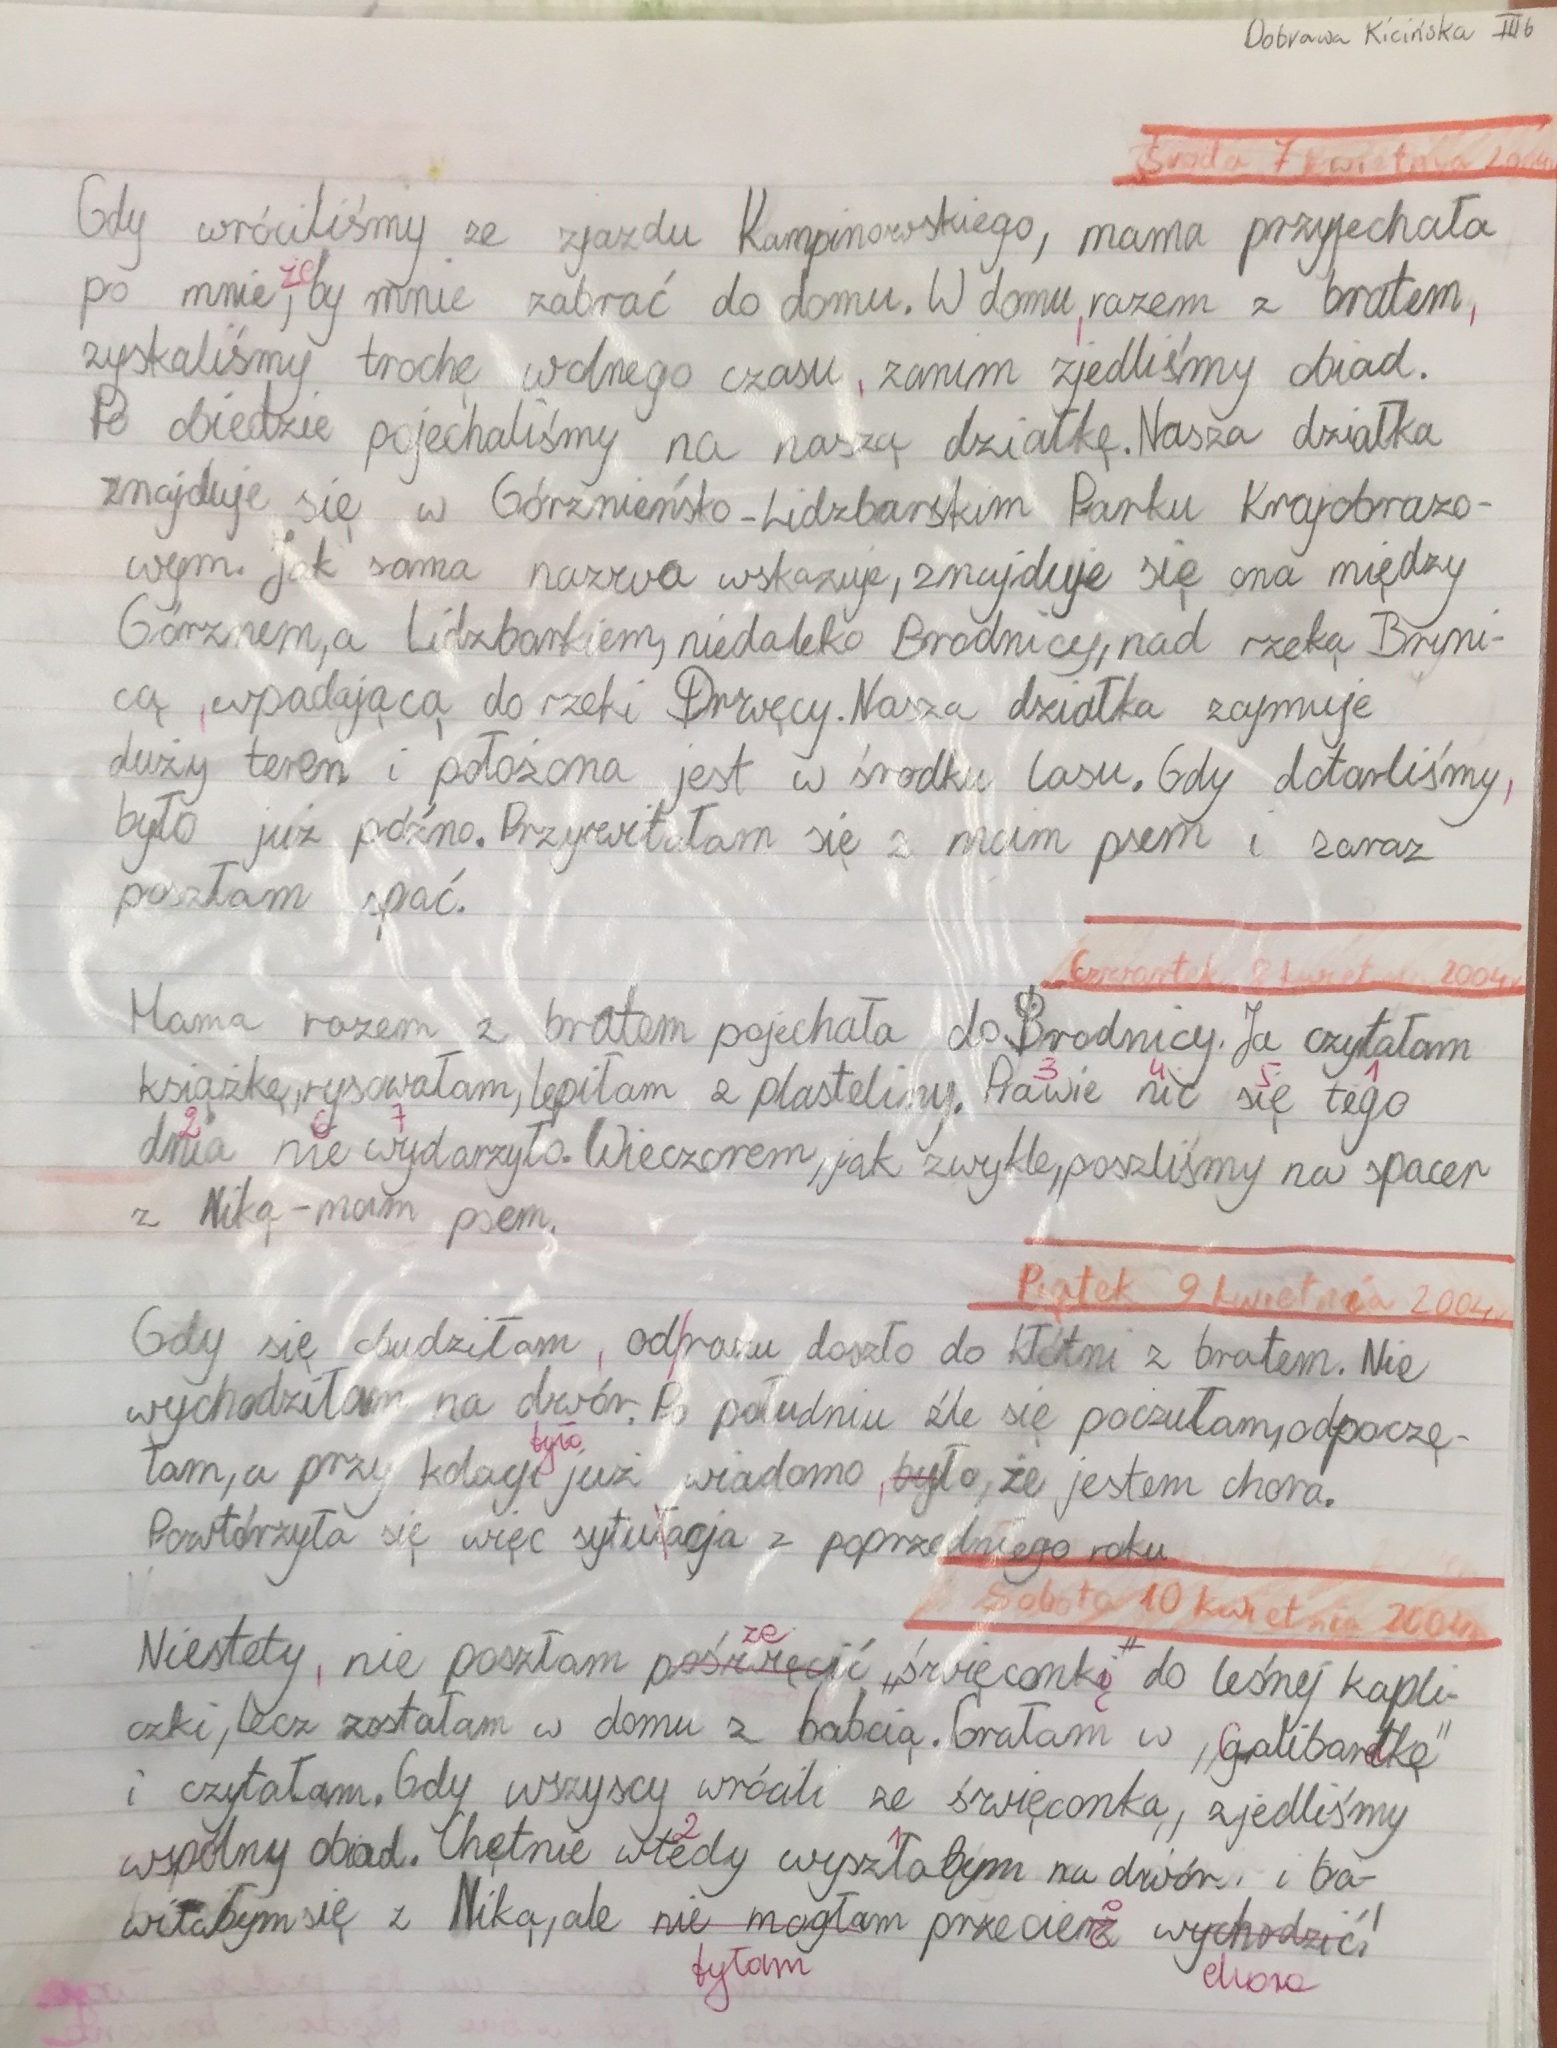 Dobrawa Kicińska III b
Środa 7 kwietnia 2004
Gdy wróciliśmy ze zjazdu Kampinowskiego, mama przyjechała
że
po mnie, by mnie zabrać do domu. W domu, razem z bratem,
zyskaliśmy trochę wolnego czasu, zanim zjedliśmy obiad.
Po obiedzie pojechaliśmy na naszą działkę. Nasza działka
znajduje się w Górznieńsko-Lidzbarskim Parku Krajobrazo-
wym. Jak sama nazwa wskazuje, znajduje się ona między
Górznem, a Lidzbarkiem, niedaleko Brodnicy, nad rzeką Bryni-
cą, wpadającą do rzeki Drwęcy. Nasza działka zajmuje
duży teren i położona jest w środku lasu. Gdy dotarliśmy,
było już późno. Przywitałam się z moim psem i zaraz
poszłam spać.
Czwartek 8 kwietnia 2004
Mama razem z bratem pojechała do Brodnicy. Ja czytałam
3 4 5 1
książkę, rysowałam, lepiłam z plasteliny. Prawie nic się tego
2 6 7
dnia nie wydarzyło. Wieczorem, jak zwykle, poszliśmy na spacer
z Niką - moim psem.
Piątek 9 kwietnia 2004
Gdy się obudziłam, od razu doszło do kłótni z bratem. Nie
wychodziłam na dwór. Po południu źle się poczułam, odpoczę-
było
łam, a przy kolacji już wiadomo, było, że jestem chora.
Powtórzyła się więc sytułacja z poprzedniego roku
Sobota 10 kwietnia 2004
ze
Niestety, nie poszłam poświęcić „święconki" do leśnej kapli-
czki, lecz zostałam w domu z babcią. Grałam w „Galibardkę"
i czytałam. Gdy wszyscy wrócili ze święconką, zjedliśmy
2 1
wspólny obiad. Chętnie wtedy wyszłabym na dwór i ba-
wiłabym się z Niką, ale nie mogłam przecierz wychodzić!
byłam chora